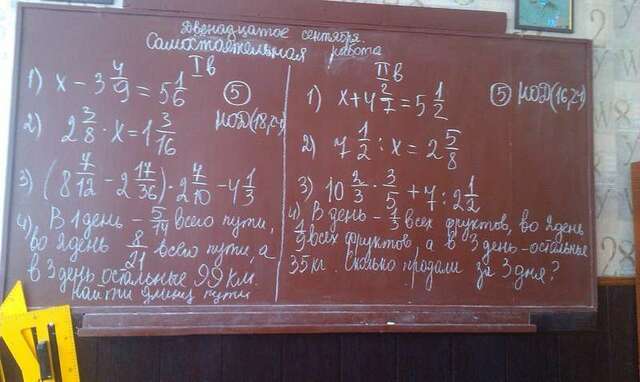 Двенадцатое сентября.
Самостоятельная работа
I в
1) x − 3 4/9 = 5 1/6
⑤ НОД(18,24)
2) 2 3/8 · x = 1 3/16
3) (8 7/12 − 2 17/36) · 2 7/10 − 4 1/3
4) В 1 день – 5/14 всего пути,
во 2 день 8/21 всего пути, а
в 3 день остальные 99 км.
Найти длину пути
II в
1) x + 4 2/7 = 5 1/2
⑤ НОД(16,24)
2) 7 1/2 : x = 2 5/8
3) 10 2/3 · 3/5 + 7 : 2 1/2
4) В день – 1/3 всех фруктов, во 2 день
4/9 всех фруктов, а в 3 день – остальные
35 кг. Сколько продали за 3 дня?